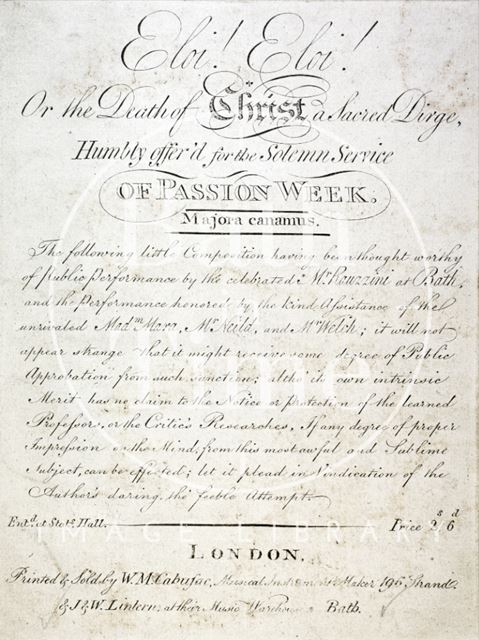 Eloi! Eloi!
Or the Death of Christ a Sacred Dirge,
Humbly offer'd for the Solemn Service
OF PASSION WEEK.
Majora canamus.
The following little Composition having been thought worthy
of Public Performance by the celebrated Mr. Rauzzini at Bath,
and the Performance honored by the kind Assistance of the
unrivaled Madm. Mara, Mr. Neild, and Mr. Welsh; it will not
appear strange that it might receive some degree of Public
Approbation from such Sanction; altho its own intrinsic
Merit has no claim to the Notice or Protection of the learned
Professor, or the Critic's Researches, If any degree of proper
Impression on the Mind, from this most awful and Sublime
Subject, can be effected; let it plead in Vindication of the
Author's daring, tho' feeble Attempt.
Entd. at Stats. Hall. Price 2s 6d
LONDON,
Printed & Sold by W. M. Cahusac, Musical Instrument Maker 196 Strand,
& J. & W. Lintern, at their Music Warehouse Bath.
Bath
in
Time
IMAGE LIBRARY